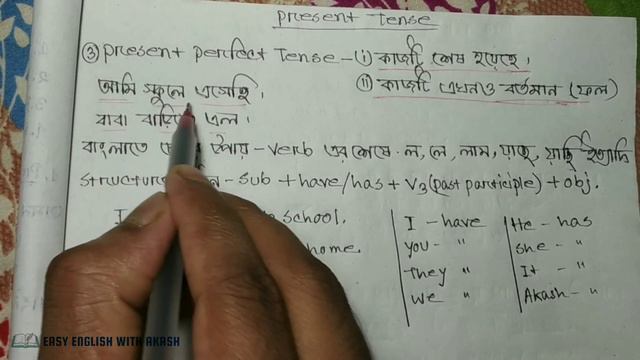 Present Tense
③ Present Perfect Tense - (i) কাজটি শেষ হয়েছে।
(ii) কাজটি এখনও বর্তমান (ফল)
আমি স্কুলে এসেছি।
বাবা এল।
বাংলাতে উপায় - verb এর শেষে ল, লে, লাম, য়াছ, ইত্যাদি
Structure - sub + have/has + V3 (past participle) + obj.
I school.
home.
I - have
You - "
They "
We - "
He - has
She - "
It - "
Akash - "
EASY ENGLISH WITH AKASH